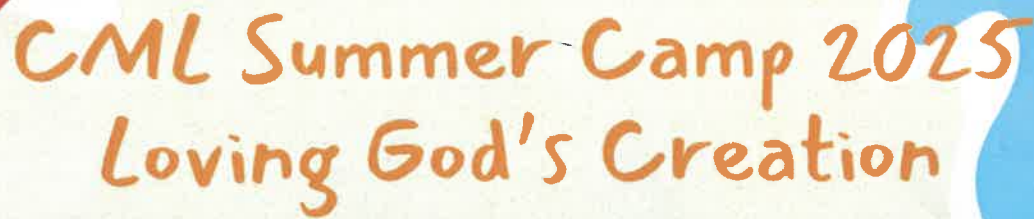 CML Summer Camp 2025
Loving God's Creation